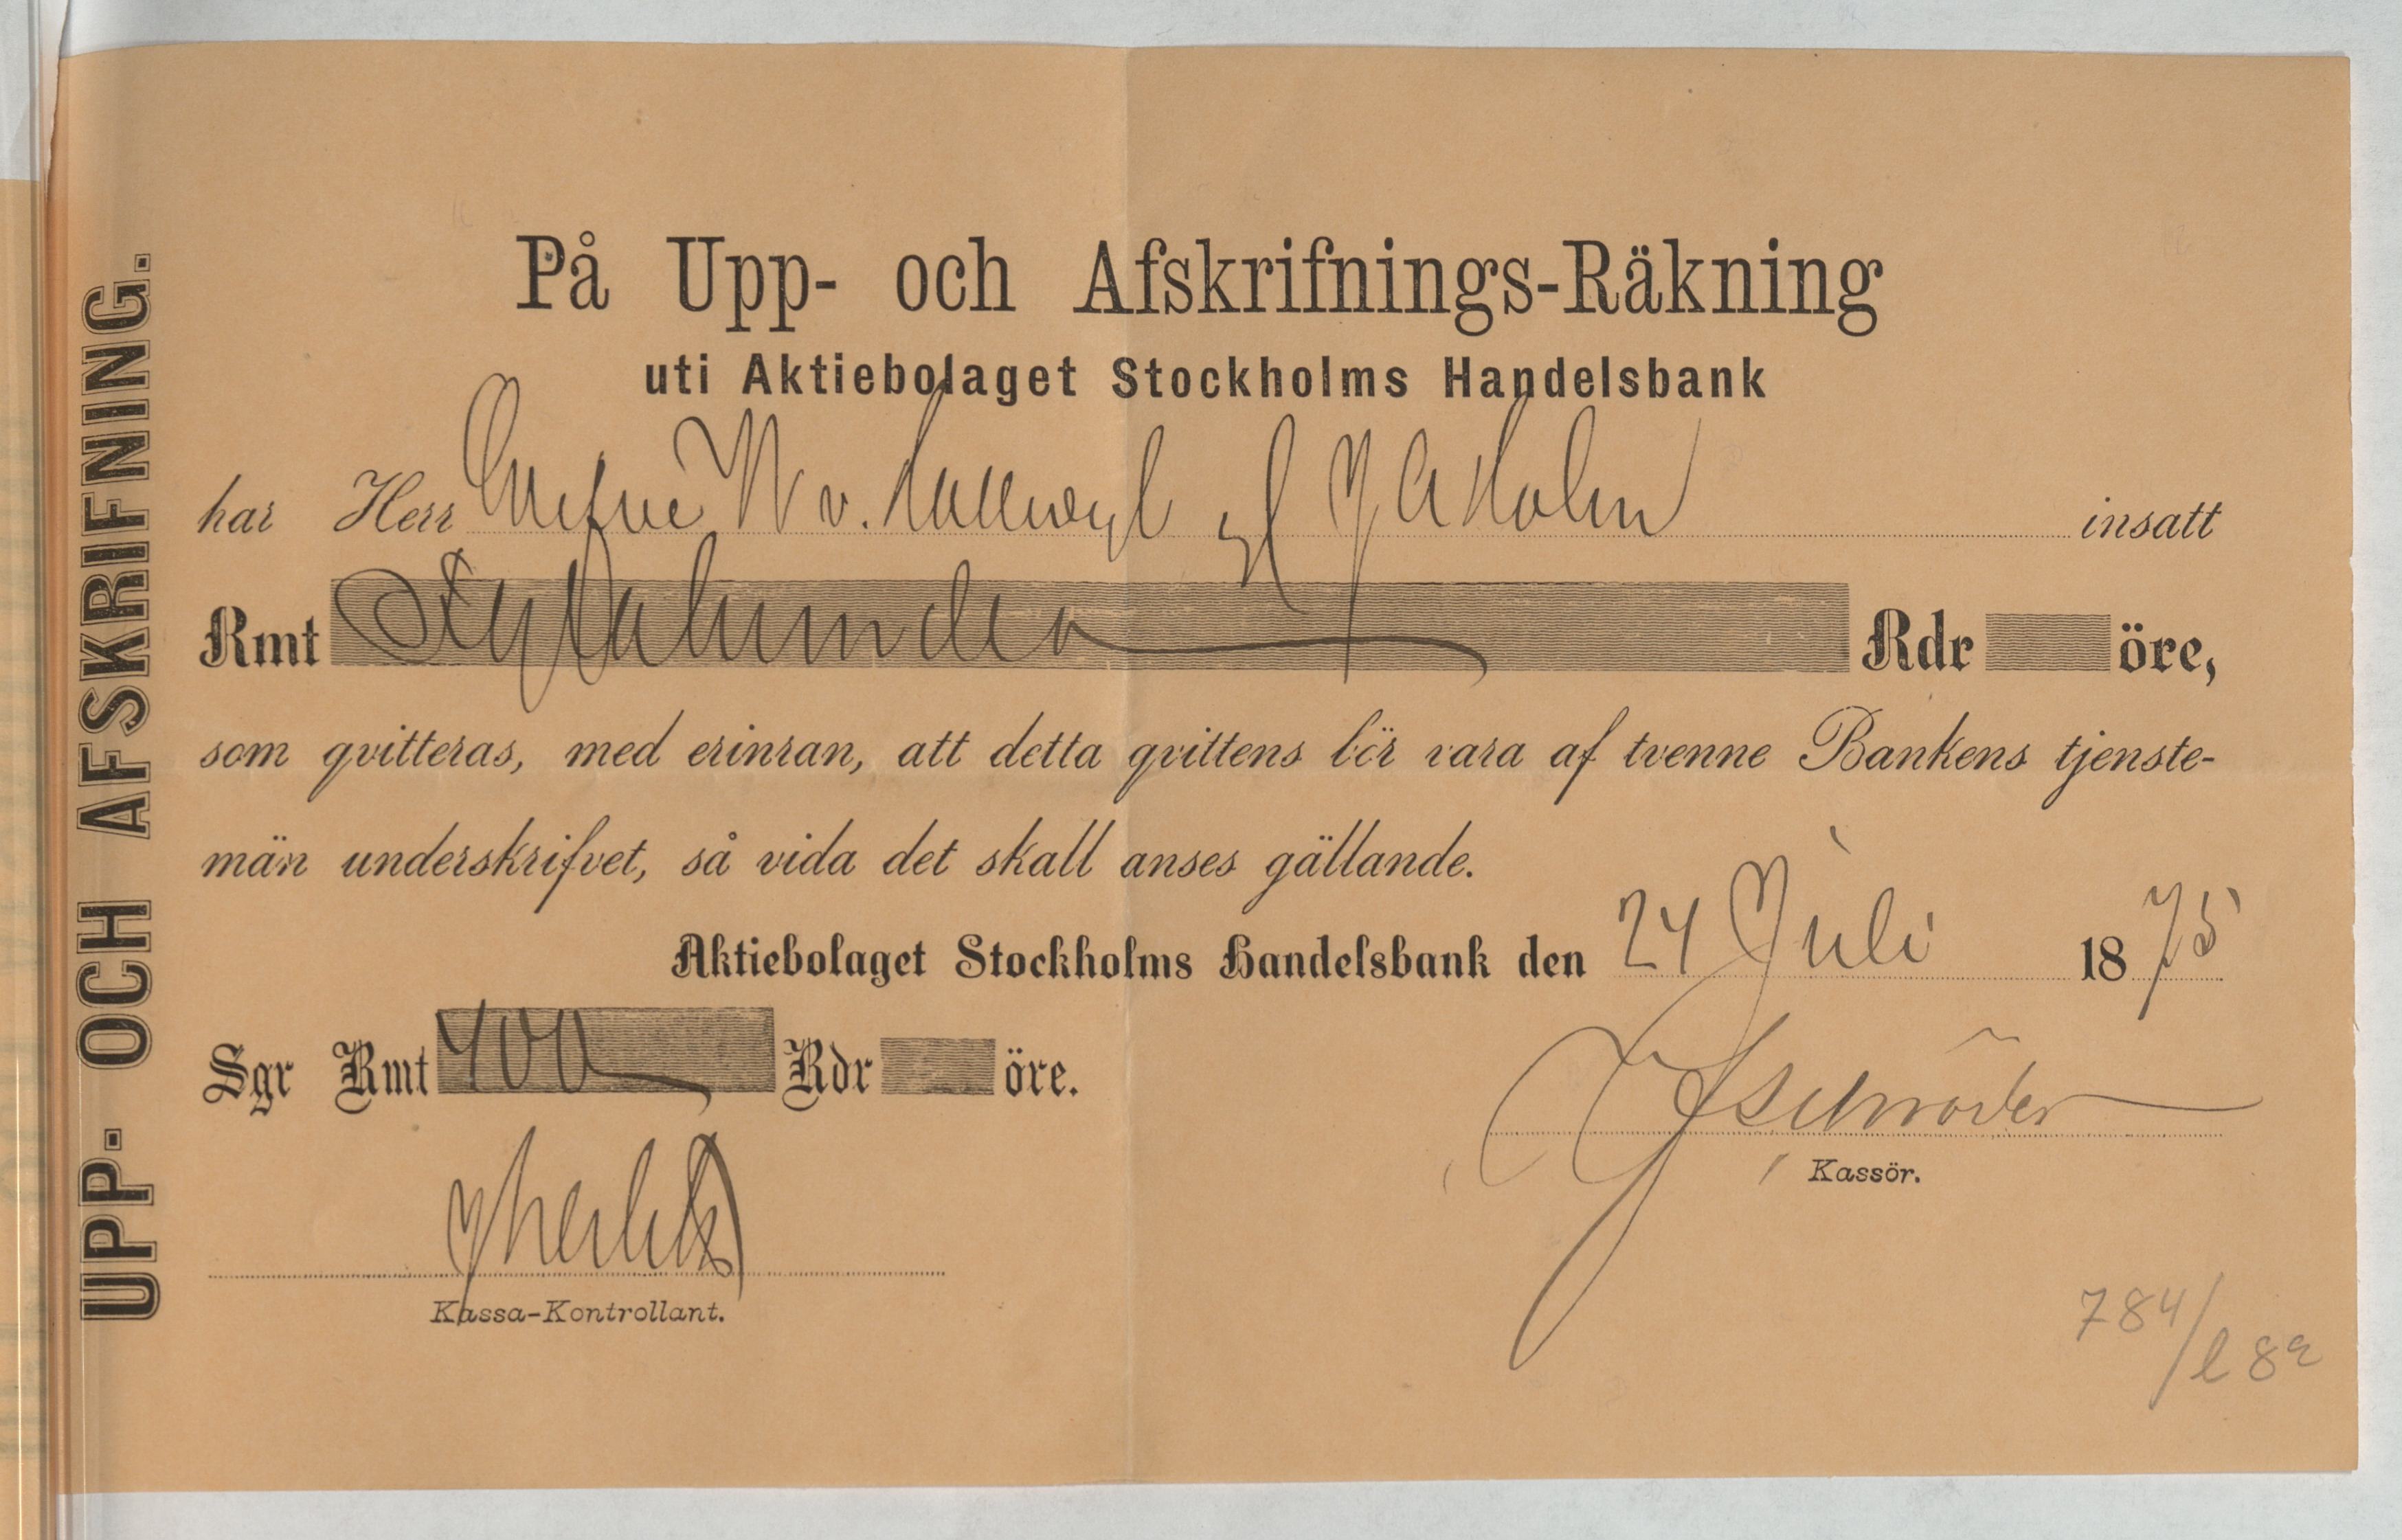 UPP- OCH AFSKRIFNING.
På Upp- och Afskrifnings-Räkning
uti Aktiebolaget Stockholms Handelsbank
har Herr Grefve W v. Hallwyl gm J A Holm insatt
Rmt Fyrahundra Rdr öre,
som qvitteras, med erinran, att detta qvittens bör vara af tvenne Bankens tjenste-
män underskrifvet, så vida det skall anses gällande.
Aktiebolaget Stockholms Handelsbank den 24 Juli 1875
Sgr Rmt 400 Rdr öre.
Schröder
Kassör.
Kassa-Kontrollant.
784/